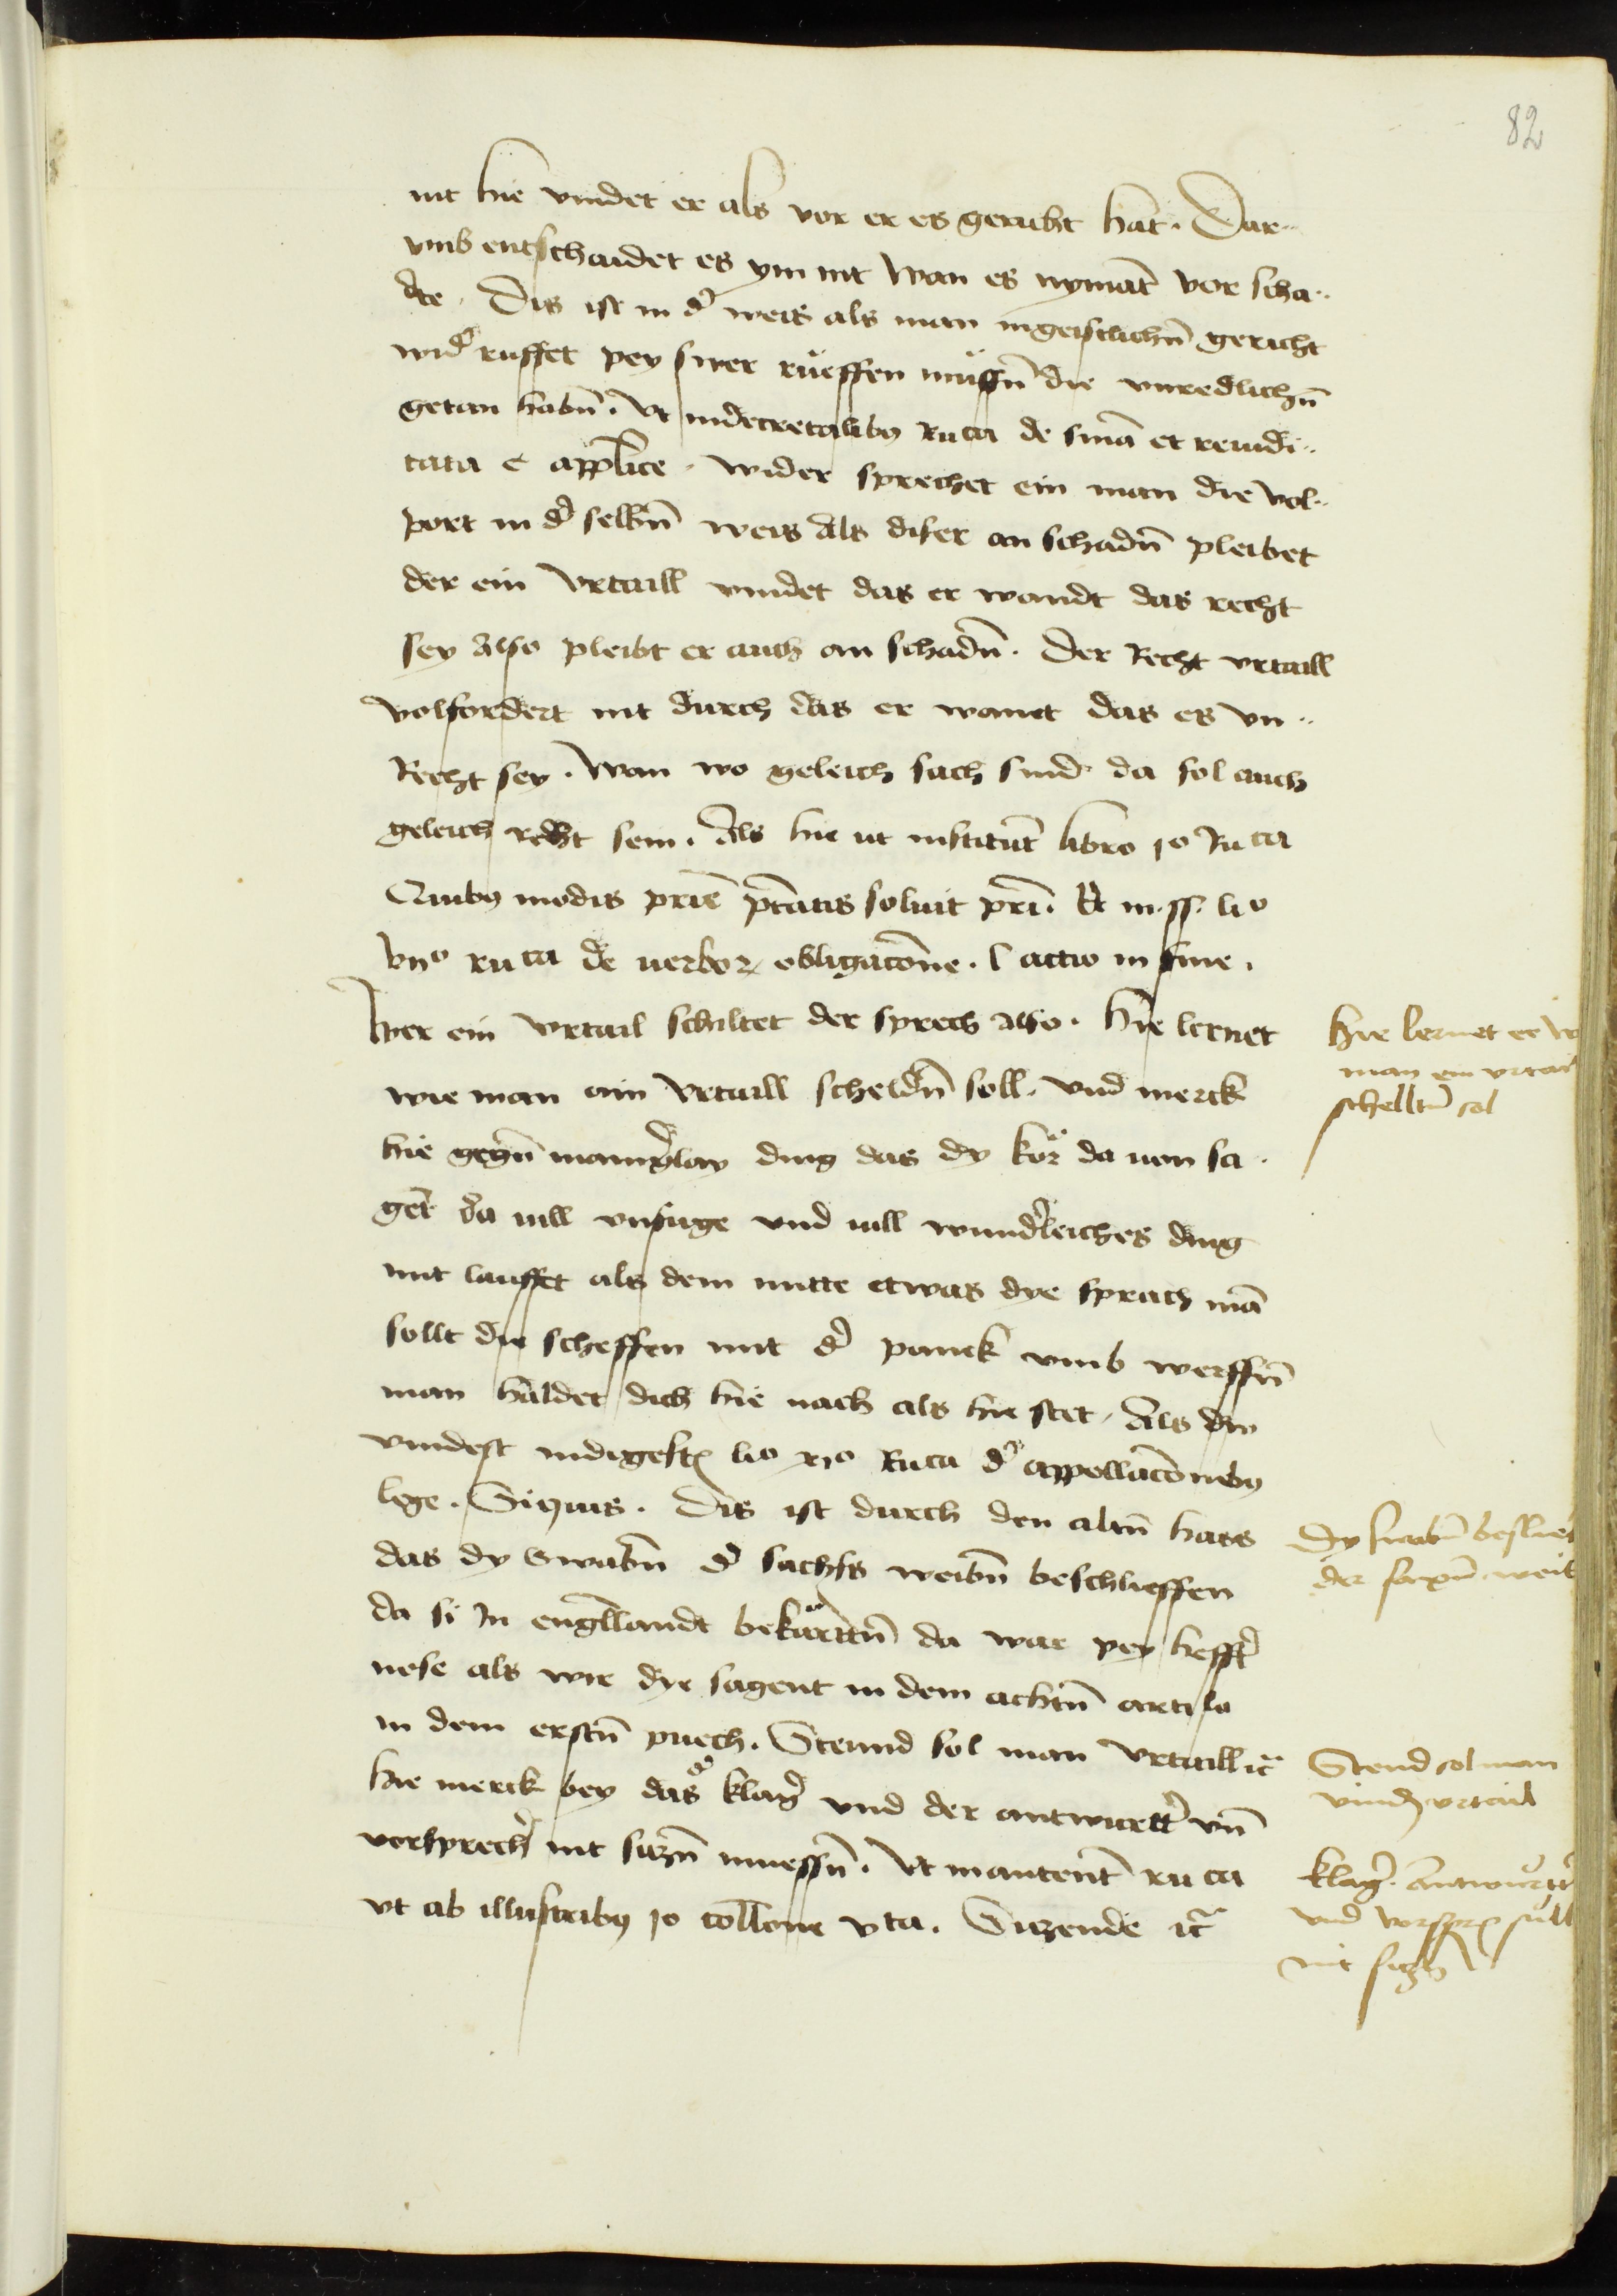 82
nit hie vindet er als vor er es gerubt hat. Dar¨
vmb entschaidet es ym nit wan es nymāt vor scha¨
dte. Dis ist in d̄ weis als man in geistlichn̄ gericht
wid̄ ruffet pey swer rüeffen müssn̄ die vnredlichn̄
getan habn̄. Vt in decretalibꝫ Ru ca de smā et reiudi¨
cata c applice. wider sprechet ein man die vol¨
port in d̄ selbn̄ weis als diser an schadn̄ pleibet
der ein Vrtaill vindet das er wandt das recht
sey Also pleibt er auch an schadn̄. Der Recht vrtaill
volfordert nit durch das er wanet das es vn¨
Recht sey. Wan wo geleich sach sind da sol auch
geleich recht sein. Als hie ut institut̄ libro jo Ru ca
Quibꝫ modis prīe ptātis soluit prī. Et in ff. lio
vijo ru ca de uerboꝝ obligacōne. l actio in fine.
Wer ein vrtail schiltet der sprech also. Hie lernet
wie man ain Vrtaill scheldn̄ soll. Vnd merck
hie gegn̄ maniḡlay ding das dy kör da uon sa¨
get̄ da uill vnfuge vnd uill wund̄leiches ding
mit lauffet als dem mitte etwas dye sprach mā
sollt die scheffen mit d̄ panck vmb werffn̄
man haldet dich hie nach als hie stet. Als du
vindest in digestꝭ lio xjo Ru ca d̄ appellacōnibꝫ
lege. Si quis. Dis ist durch den altn̄ hass
das dy Swabn̄ d̄ sachss weibn̄ beschlieffen
da si In englandt bekärttn̄ da war pey hefft̄
nese als wir dye sagent in dem achtn̄ articlo
in dem erstn̄ puech. Steund sol man Vrtaill ꝛc̄
hie merck bey das klaḡ vnd der antwurtt̄ vn̄
vorsprech̄ nit siczn̄ muessn̄. Vt in autent̄ ru ca
vt ab illustribꝫ jo collone vta. Siczende ꝛc̄
Hie lernet er w
man ein vrtail
schelltn̄ sol
Dy swabn̄ beslief
der saxn̄ weib
Stend sol man
vindn̄ vrteil
Klaḡ. Antwurtt̄
vnd vorsprꝭ sull
nit siczn̄